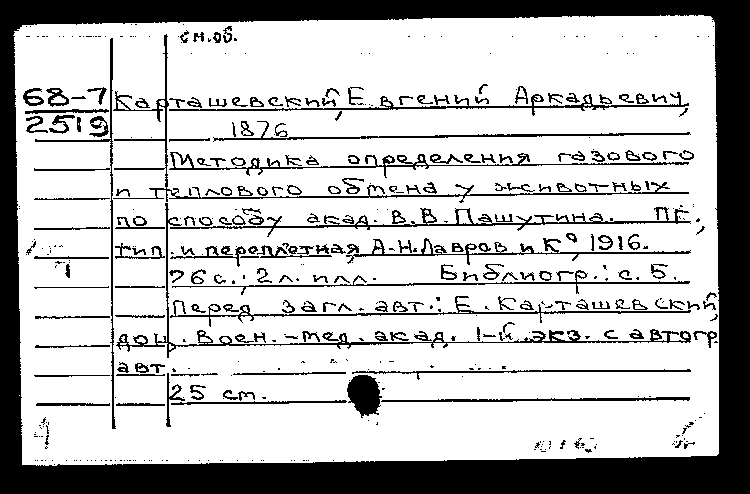 см.об.
68-7
2519
Карташевский, Евгений Аркадьевич,
1876
Методика определения газового
и теплового обмена у животных
по способу акад. В.В. Пашутина. ПГ.,
тип. и переплетная А.Н.Лавров и К°, 1916.
76 с.; 2 л. илл. Библиогр.: с. 5.
Перед загл. авт.: Е. Карташевский,
доц. Воен.-мед. акад. 1-й экз. с автогр
авт.
25 см.